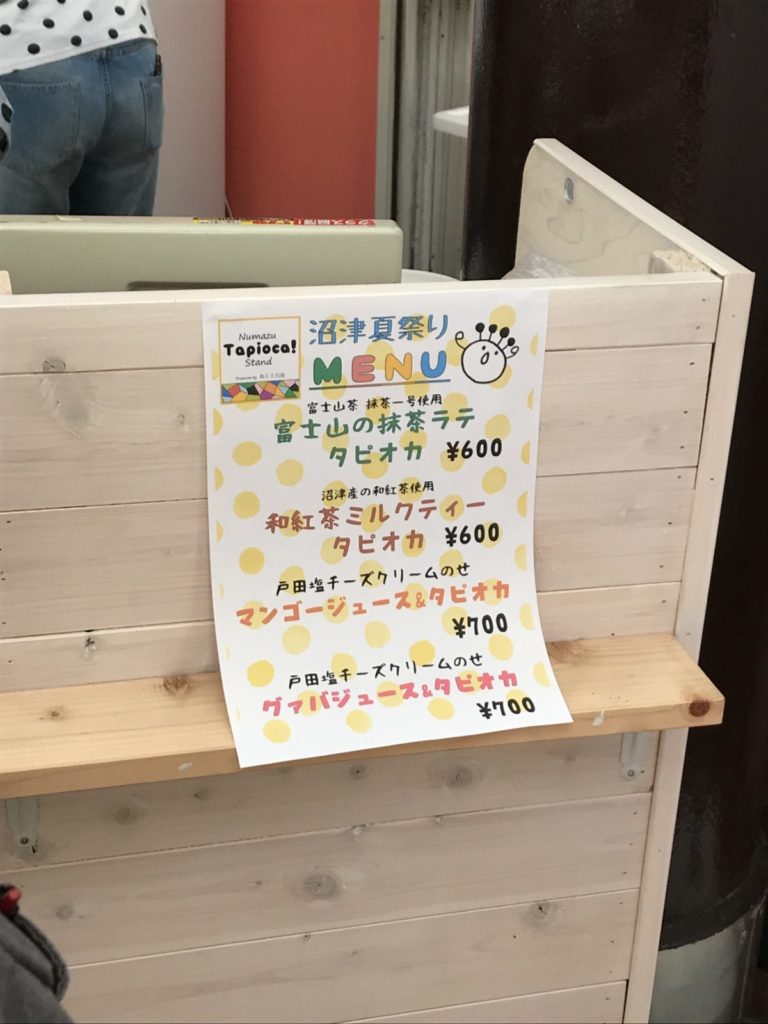 Numazu
Tapioca!
Stand
沼津夏祭り
MENU
富士山茶 抹茶一号使用
富士山の抹茶ラテ
タピオカ ¥600
沼津産の和紅茶使用
和紅茶ミルクティー
タピオカ ¥600
戸田塩チーズクリームのせ
マンゴージュース&タピオカ
¥700
戸田塩チーズクリームのせ
グァバジュース&タピオカ
¥700